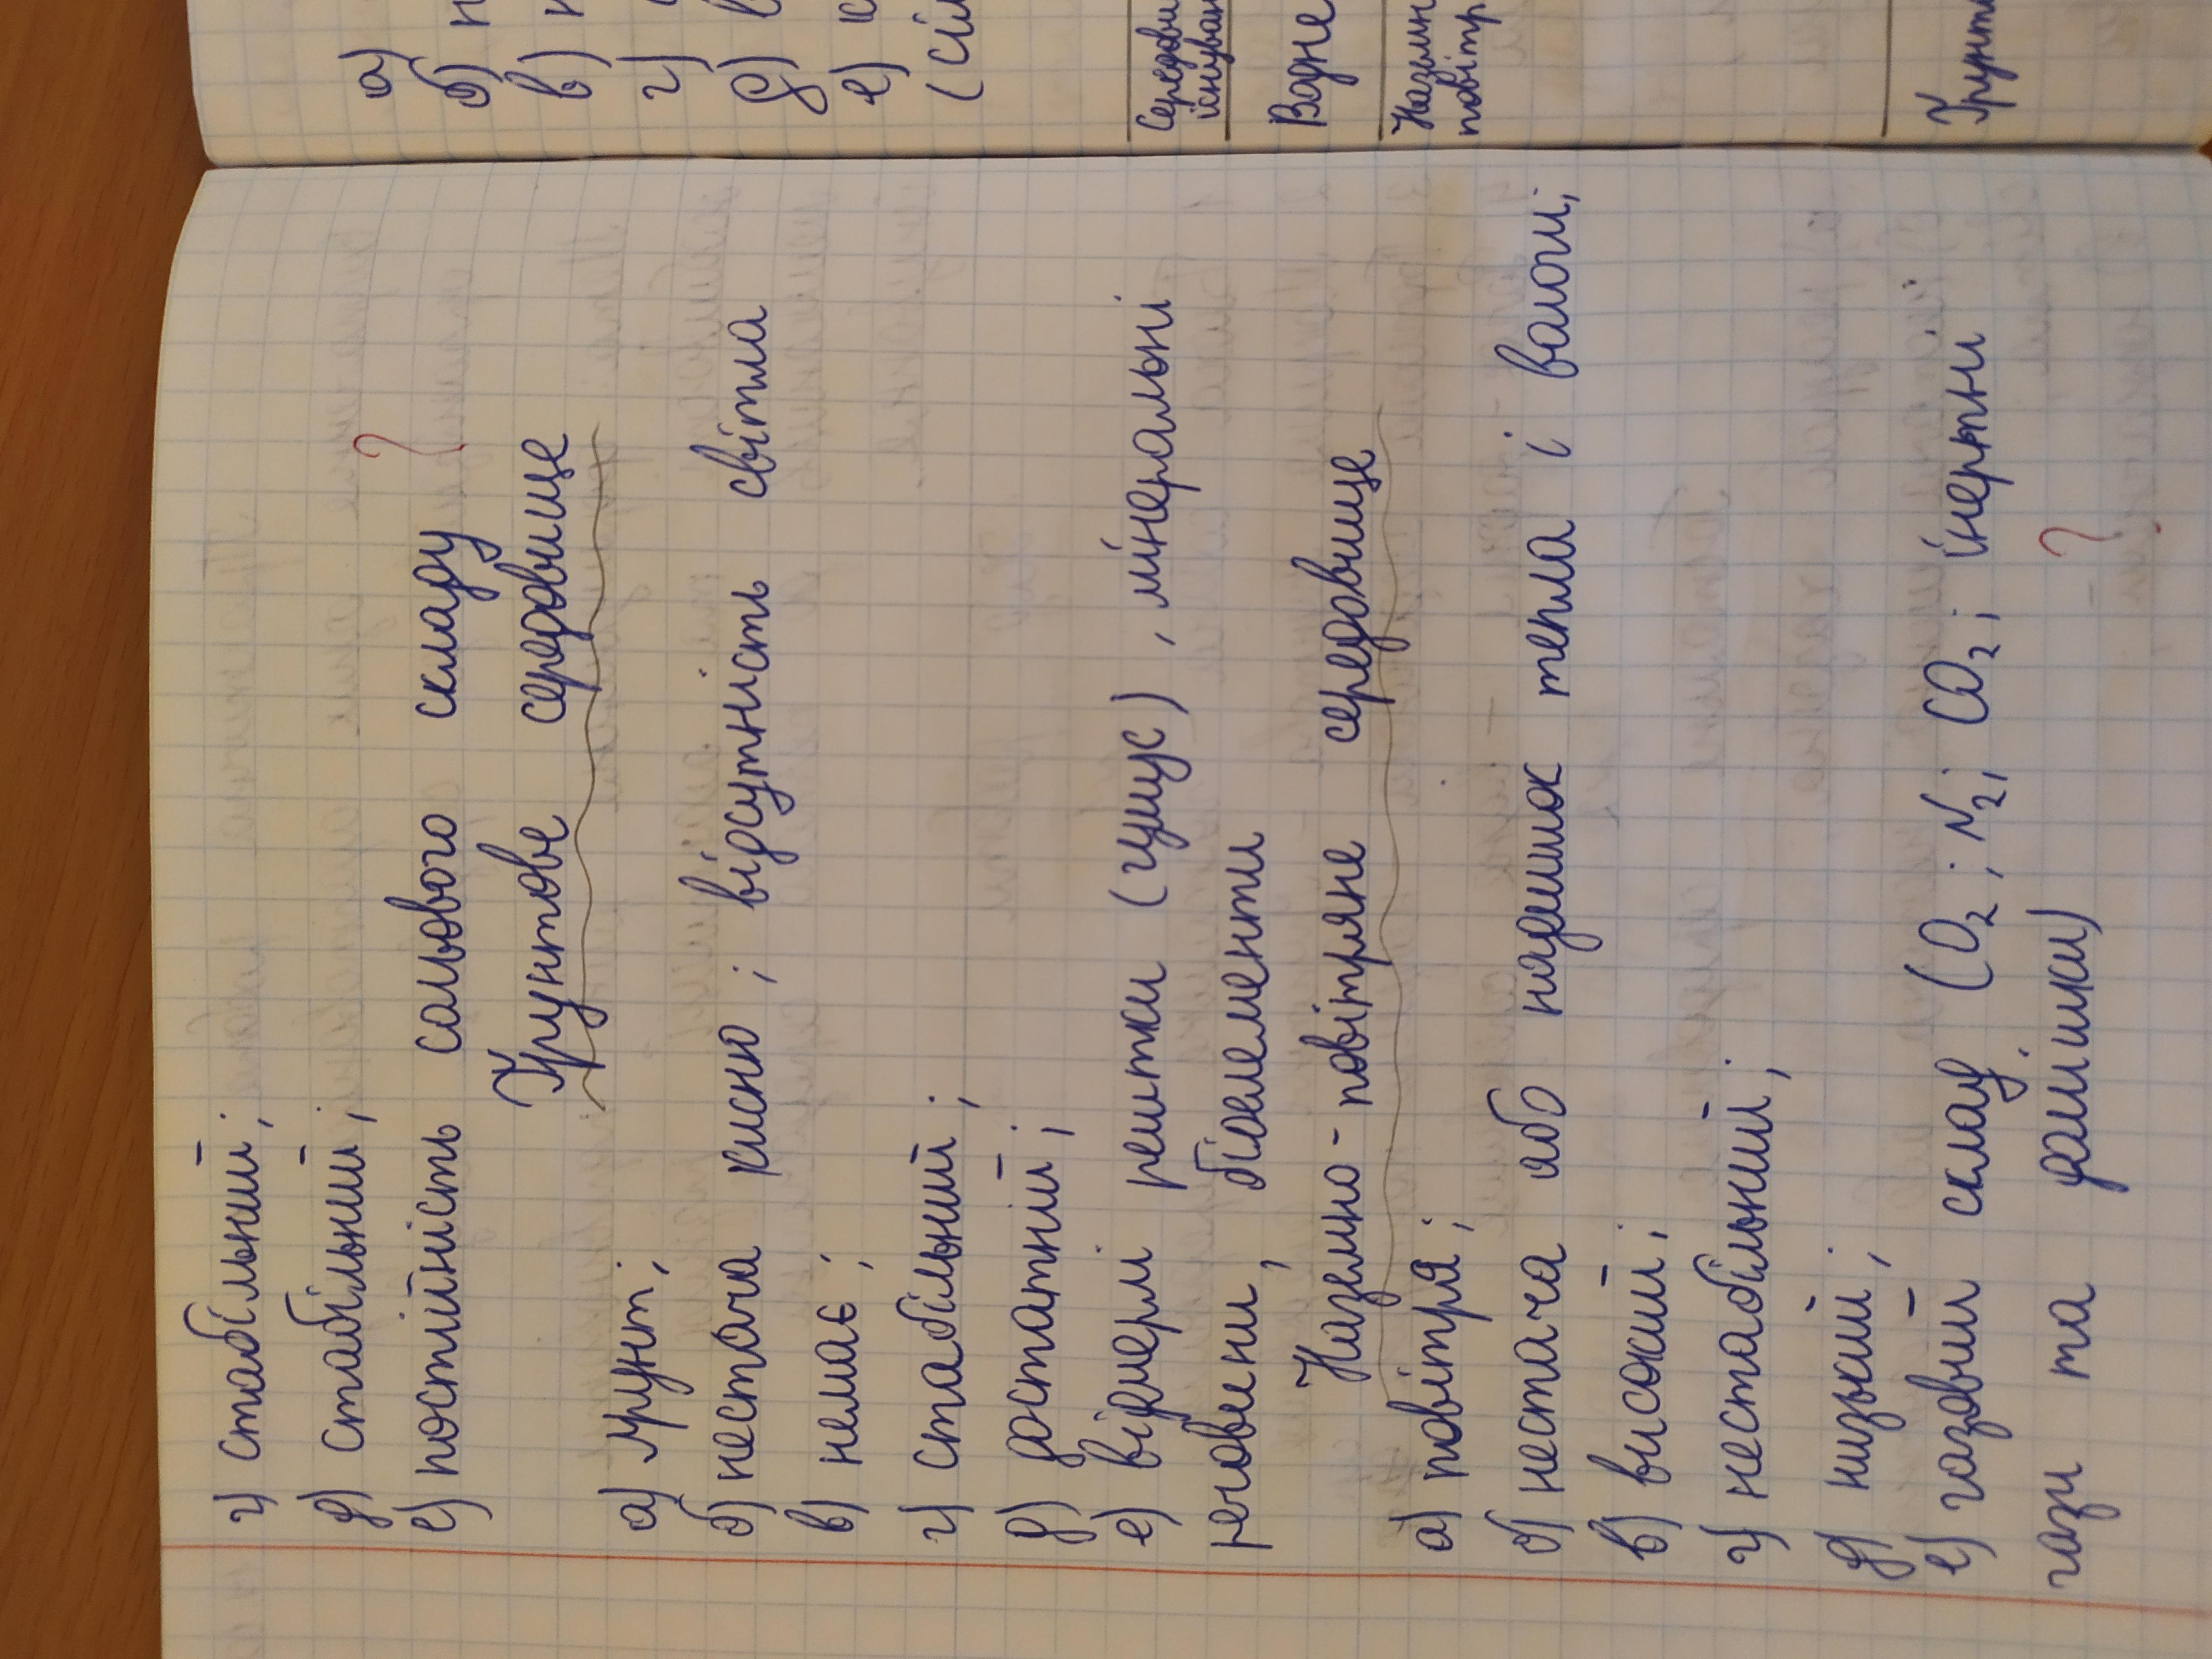 г) стабільний;
д) стабільний;
е) постійність сольового складу ?
Ґрунтове середовище
а) ґрунт;
б) нестача кисню; відсутність світла
в) немає;
г) стабільний;
д) достатній;
е) відмерлі рештки (гумус), мінеральні
речовини, біоелементи
Наземно-повітряне середовище
а) повітря;
б) нестача або надлишок тепла і вологи;
в) високий;
г) нестабільний;
д) низький;
е) газовий склад (O2; N2; CO2; інертні
гази та домішки) ?
а)
б)
в)
г)
д)
е)
(сіл
Середови
існуван
Водне
Наземн
повітр
Ґрунт